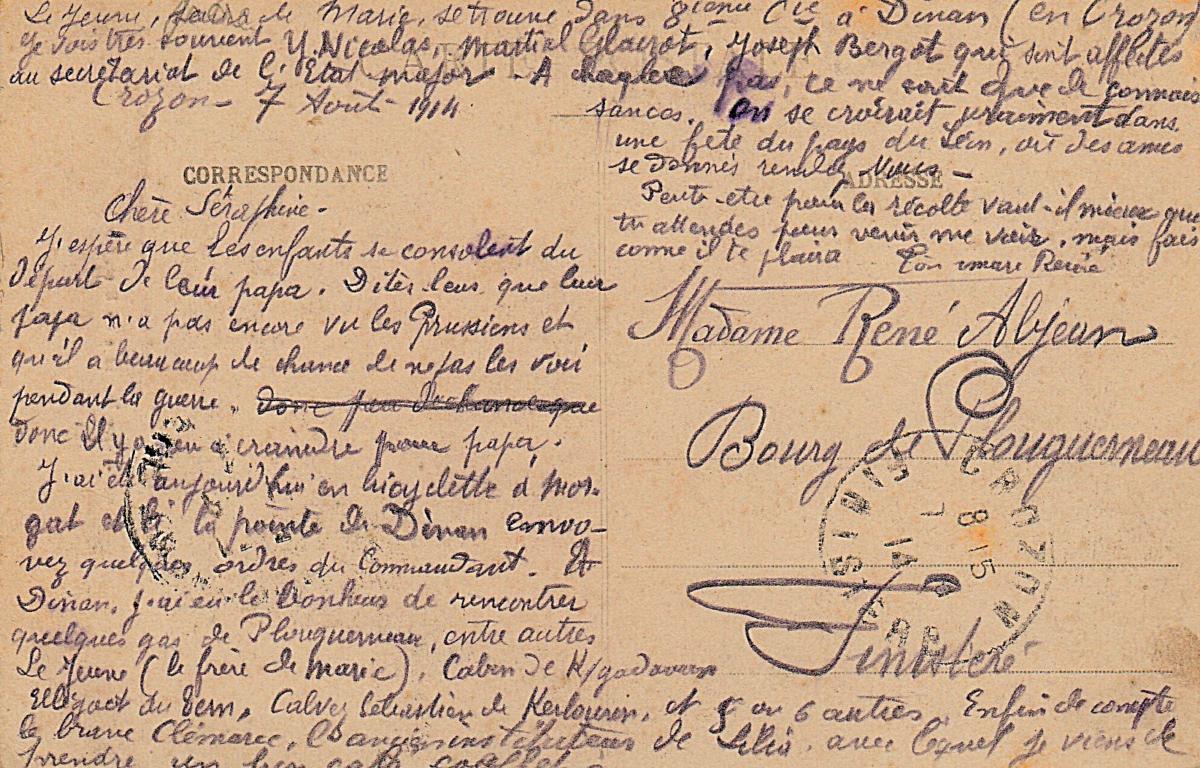 Le Jeune, de Marie, se trouve dans 8ième Cie à Dinan (en Crozon)
Je vois très souvent Y. Nicolas, Martial Glaizot, Joseph Bergot qui sont affectés
au secrétariat de l'Etat major A chaque pas, ce ne sont que de connais
Crozon - 7 Août 1914
sances. On se croirait vraiment dans
une fête du pays du Léon, où des amis
se donnés rendez vous -
CORRESPONDANCE
ADRESSE
Chère Séraphine -
Peut-etre pour la récolte vaut-il mieux que
tu attendes pour venir me voir, mais fais
come il te plaira Ton mari René
J'espère que les enfants se consolent du
départ de leur papa. Dites leur que leur
papa n'a pas encore vu les Prussiens et
qu'il a beaucoup de chance de ne pas les voir
pendant la guerre. donc peu de chance que
donc Il y a peu à craindre pour papa.
J'ai été aujourd'hui en bicyclette à Mor-
gat et à la pointe de Dinan envoy-
vez quelques ordres du Commandant. A
Dinan, j'ai eu le bonheur de rencontrer
quelques gas de Plouguerneau, entre autres
Le Jeune (le frère de Marie), Cabon de
du Vern, Calvez Sébastien de Kerlouron, et 5 ou 6 autres. Enfin de compte
le brave Clémarec, l'ancien instituteur de Lilia, avec lequel je viens de
prendre un bon café
Madame René Abjean
Bourg de Plouguerneau
Finistère
CROZON
8 15
7
14
FINISTERE